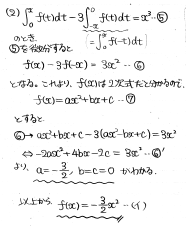 (2) ∫₀ˣ f(t)dt − 3∫₋ₓ⁰ f(t)dt = x³ …⑤
のとき (= ∫₀ˣ f(-t)dt)
⑤を微分すると
f(x) − 3f(-x) = 3x² …⑥
となる。これより、f(x)は2次式だと分かるので、
f(x) = ax² + bx + c …⑦
とすると
⑥→ ax² + bx + c − 3(ax² − bx + c) = 3x²
⇔ −2ax² + 4bx − 2c = 3x² …⑥'
より、a = −3/2, b = c = 0 がわかる.
以上から f(x) = −3/2 x² …(イ)